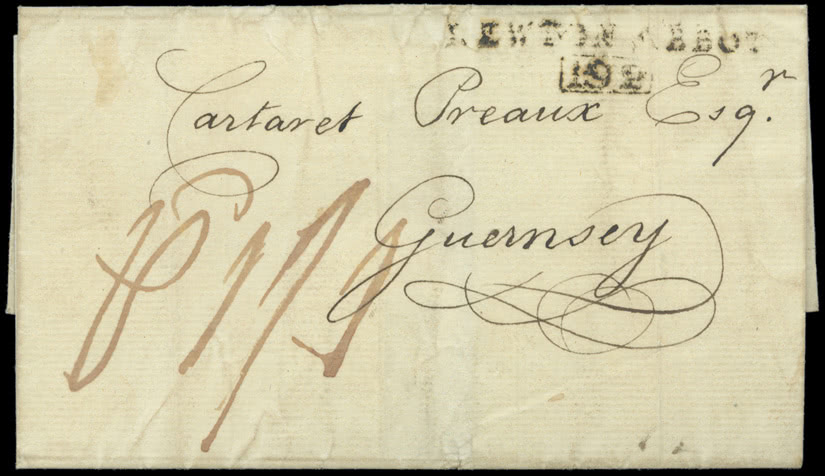 NEWTON ABBOT
192
Cartaret Preaux Esqr.
Guernsey